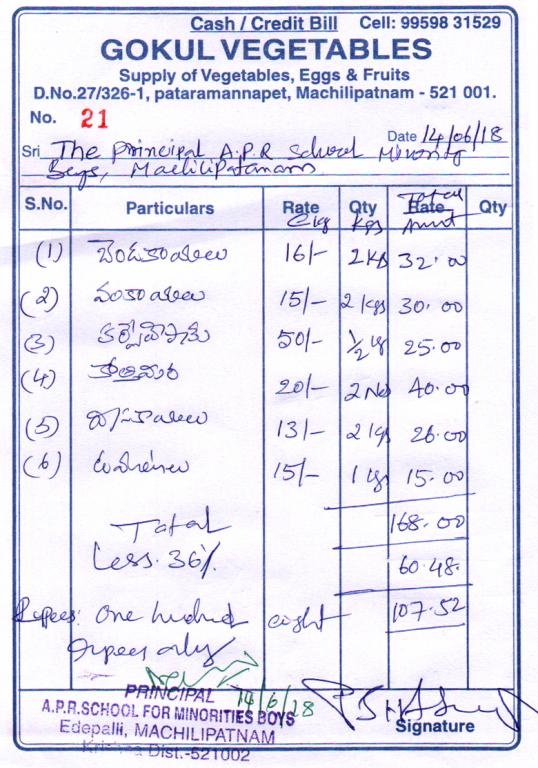 Cash / Credit Bill Cell: 99598 31529
GOKUL VEGETABLES
Supply of Vegetables, Eggs & Fruits
D.No.27/326-1, pataramannapet, Machilipatnam - 521 001.
No. 21
Date 14/06/18
Sri The Principal A.P.R School Minority
Boys, Machilipatanam
S.No. Particulars Rate Qty Kgs Rate Total Amnt Qty
(1) బెండకాయలు 16/- 2 Kgs 32.00
(2) వంకాయలు 15/- 2 Kgs 30.00
(3) కర్వేపాకు 50/- 1/2 kg 25.00
(4) కొత్తిమీర 20/- 2 No 40.00
(5) 13/- 2 Kgs 26.00
(6) 15/- 1 Kg 15.00
Total 168.00
Less. 36% 60.48
107.52
Rupees: One hundred eight
rupees only
PRINCIPAL 14/6/18
A.P.R.SCHOOL FOR MINORITIES BOYS
Edepalli, MACHILIPATNAM
Krishna Dist.-521002
Signature